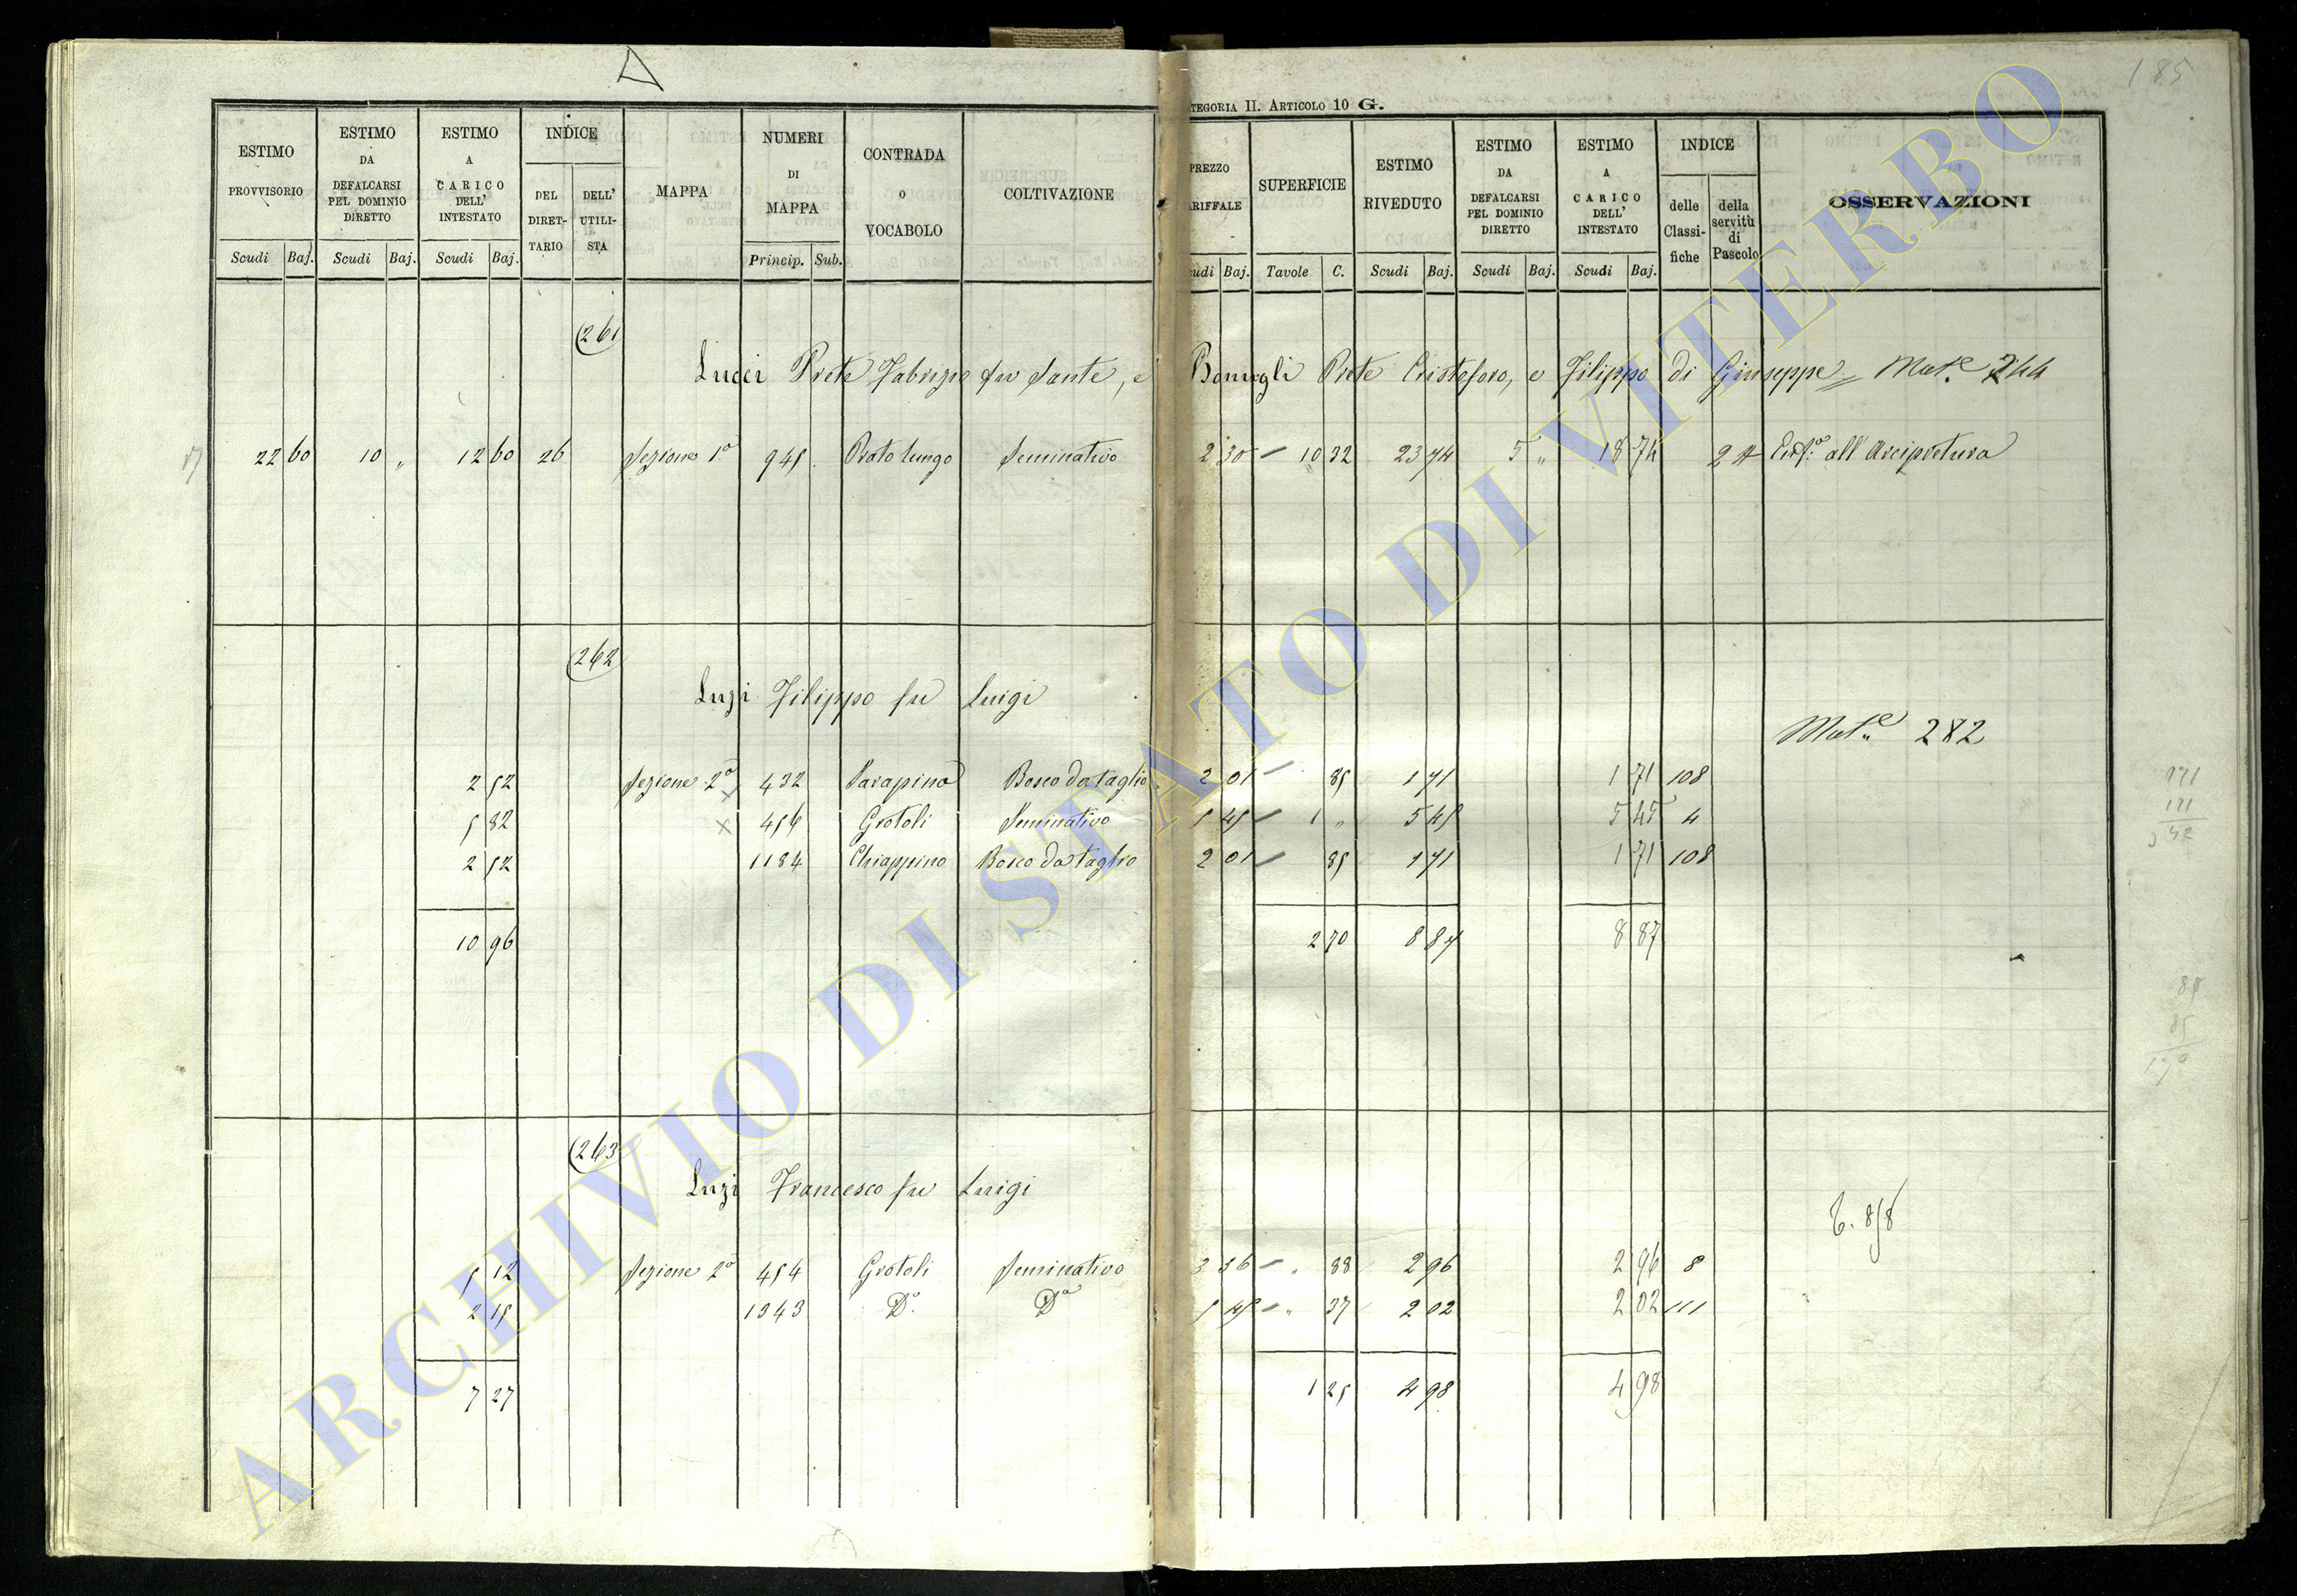 185
CATEGORIA II. ARTICOLO 10 G.
ESTIMO PROVVISORIO
ESTIMO DA DEFALCARSI PEL DOMINIO DIRETTO
ESTIMO A CARICO DELL' INTESTATO
INDICE
DEL DIRET-TARIO
DELL' UTILI-STA
MAPPA
NUMERI DI MAPPA
CONTRADA o VOCABOLO
COLTIVAZIONE
PREZZO TARIFFALE
SUPERFICIE
ESTIMO RIVEDUTO
ESTIMO DA DEFALCARSI PEL DOMINIO DIRETTO
ESTIMO A CARICO DELL' INTESTATO
INDICE
delle Classi-fiche
della servitù di Pascolo
OSSERVAZIONI
Scudi Baj. Scudi Baj. Scudi Baj. Princip. Sub. Scudi Baj. Tavole C. Scudi Baj. Scudi Baj. Scudi Baj.
261
Lucci Prete Fabrizio fu Sante, e Bonugli Prete Cristoforo, e Filippo di Giuseppe = Mat.e 244
17 22 60 10 „ 12 60 26 Sezione 1a 945 Prato lungo Seminativo 2 30 10 32 23 74 5 „ 18 74 24 all'Arcipretura
262
Luzi Filippo fu Luigi
Mat.e 282
2 52 Sezione 2a 432 Bosco da taglio 2 01 85 1 71 1 71 108
5 82 456 Grotoli Seminativo 5 45 1 „ 5 45 5 45 4
2 52 1184 Chiappino Bosco da taglio 2 01 85 1 71 1 71 108
10 96 2 70 8 87 8 87
171
171
3 42
85
85
170
263
Luzi Francesco fu Luigi
5 12 Sezione 2a 454 Grotoli Seminativo 3 36 „ 88 2 96 2 96 8
2 15 1343 D.o D.o 5 45 „ 37 2 02 2 02 111
7 27 1 25 4 98 4 98